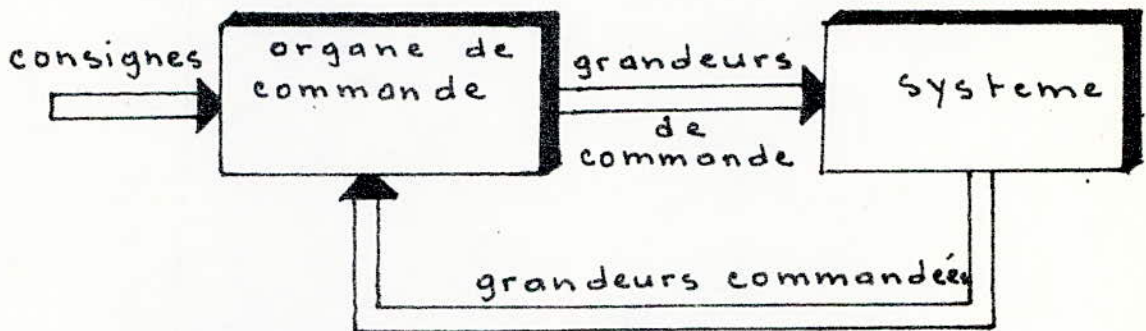 consignes
organe de
commande
grandeurs
de
commande
systeme
grandeurs commandées